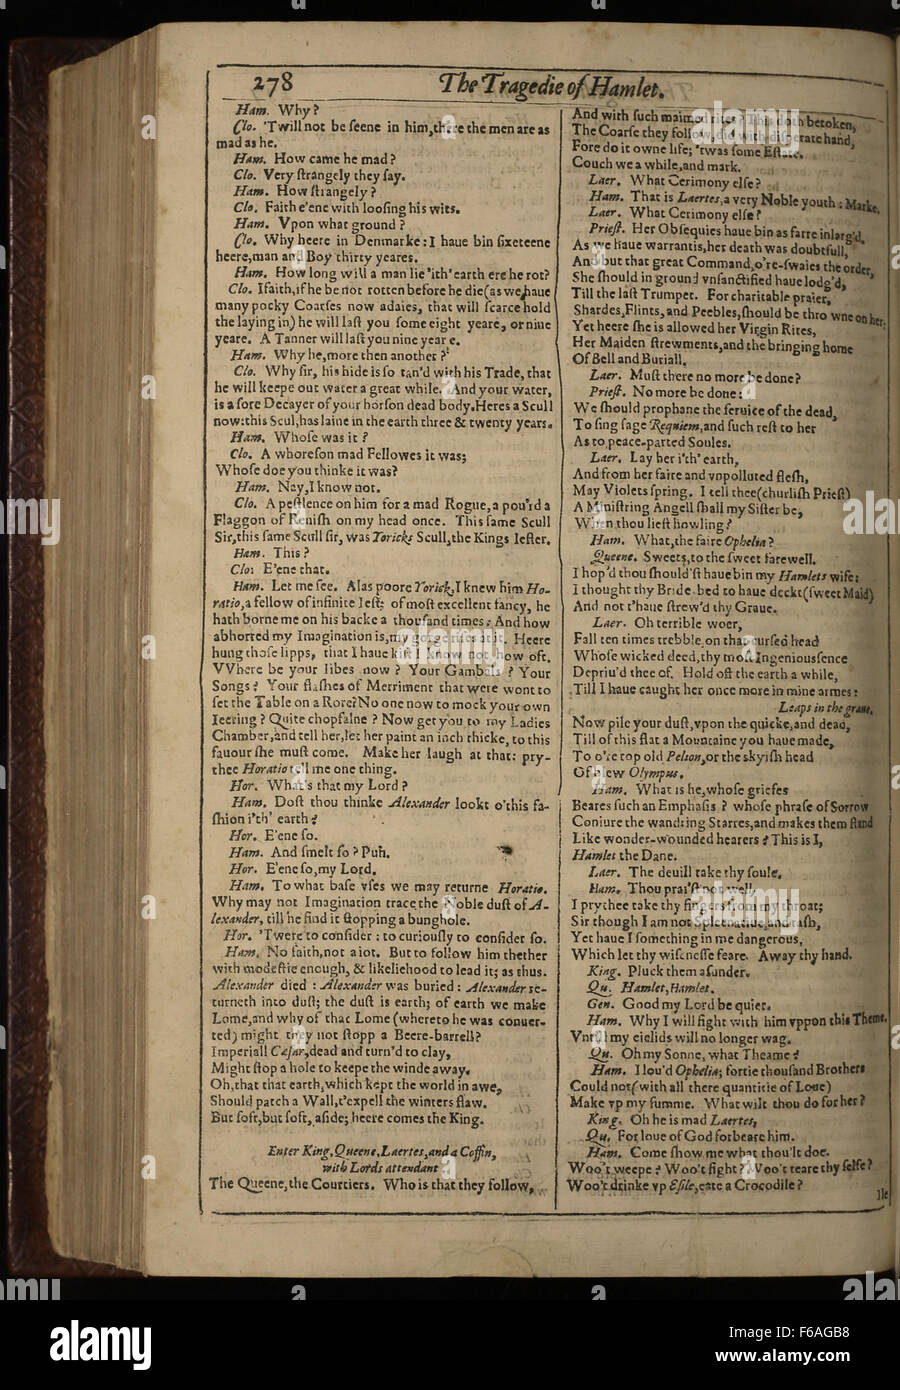 278
The Tragedie of Hamlet.
Ham. Why?
Clo. 'Twill not be seene in him, there the men are as
mad as he.
Ham. How came he mad?
Clo. Very strangely they say.
Ham. How strangely?
Clo. Faith e'ene with loosing his wits.
Ham. Vpon what ground?
Clo. Why heere in Denmarke: I haue bin sixeteene
heere, man and Boy thirty yeares.
Ham. How long will a man lie 'ith' earth ere he rot?
Clo. Ifaith, if he be not rotten before he die (as we haue
many pocky Coarses now adaies, that will scarce hold
the laying in) he will last you some eight yeare, or nine
yeare. A Tanner will last you nine yeare.
Ham. Why he, more then another?
Clo. Why sir, his hide is so tan'd with his Trade, that
he will keepe out water a great while. And your water,
is a sore Decayer of your horson dead body. Heres a Scull
now: this Scul, has laine in the earth three & twenty years.
Ham. Whose was it?
Clo. A whoreson mad Fellowes it was;
Whose doe you thinke it was?
Ham. Nay, I know not.
Clo. A pestlence on him for a mad Rogue, a pou'rd a
Flaggon of Renish on my head once. This same Scull
Sir, this same Scull sir, was Yoricks Scull, the Kings Iester.
Ham. This?
Clo: E'ene that.
Ham. Let me see. Alas poore Yorick, I knew him Ho-
ratio, a fellow of infinite Iest; of most excellent fancy, he
hath borne me on his backe a thousand times: And how
abhorred my Imagination is, my gorge rises at it. Heere
hung those lipps, that I haue kist I know not how oft.
VVhere be your Iibes now? Your Gambals? Your
Songs? Your flashes of Merriment that were wont to
set the Table on a Rore? No one now to mock your own
Ieering? Quite chopfalne? Now get you to my Ladies
Chamber, and tell her, let her paint an inch thicke, to this
fauour she must come. Make her laugh at that: pry-
thee Horatio tell me one thing.
Hor. What's that my Lord?
Ham. Dost thou thinke Alexander lookt o'this fa-
shion i'th' earth?
Hor. E'ene so.
Ham. And smelt so? Puh.
Hor. E'ene so, my Lord.
Ham. To what base vses we may returne Horatio.
Why may not Imagination trace the Noble dust of A-
lexander, till he find it stopping a bunghole.
Hor. 'Twere to consider: to curiously to consider so.
Ham. No faith, not a iot. But to follow him thether
with modestie enough, & likeliehood to lead it; as thus.
Alexander died: Alexander was buried: Alexander re-
turneth into dust; the dust is earth; of earth we make
Lome, and why of that Lome (whereto he was conuer-
ted) might they not stopp a Beere-barrell?
Imperiall Cæsar, dead and turn'd to clay,
Might stop a hole to keepe the winde away.
Oh, that that earth, which kept the world in awe,
Should patch a Wall, t'expell the winters flaw.
But soft, but soft, aside; heere comes the King.
Enter King, Queene, Laertes, and a Coffin,
with Lords attendant
The Queene, the Courtiers. Who is that they follow,
And with such maimed rites? This doth betoken,
The Coarse they follow, did with disperate hand,
Fore do it owne life; 'twas some Estate.
Couch we a while, and mark.
Laer. What Cerimony else?
Ham. That is Laertes, a very Noble youth: Marke.
Laer. What Cerimony else?
Priest. Her Obsequies haue bin as farre inlarg'd,
As we haue warrantis, her death was doubtfull,
And but that great Command, o're-swaies the order,
She should in ground vnsanctified haue lodg'd,
Till the last Trumpet. For charitable praier,
Shardes, Flints, and Peebles, should be throwne on her:
Yet heere she is allowed her Virgin Rites,
Her Maiden strewments, and the bringing home
Of Bell and Buriall.
Laer. Must there no more be done?
Priest. No more be done:
We should prophane the seruice of the dead,
To sing sage Requiem, and such rest to her
As to peace-parted Soules.
Laer. Lay her i'th' earth,
And from her faire and vnpolluted flesh,
May Violets spring. I tell thee (churlish Priest)
A Ministring Angell shall my Sister be,
When thou liest howling?
Ham. What, the faire Ophelia?
Queene. Sweets, to the sweet farewell.
I hop'd thou should'st haue bin my Hamlets wife:
I thought thy Bride-bed to haue deckt (sweet Maid)
And not t'haue strew'd thy Graue.
Laer. Oh terrible woer,
Fall ten times trebble, on that cursed head
Whose wicked deed, thy most Ingenious sence
Depriu'd thee of. Hold off the earth a while,
Till I haue caught her once more in mine armes:
Leaps in the graue.
Now pile your dust, vpon the quicke, and dead,
Till of this flat a Mountaine you haue made,
To o're top old Pelion, or the skyish head
Of blew Olympus.
Ham. What is he, whose griefes
Beares such an Emphasis? whose phrase of Sorrow
Coniure the wandring Starres, and makes them stand
Like wonder-wounded hearers? This is I,
Hamlet the Dane.
Laer. The deuill take thy soule.
Ham. Thou prai'st not well,
I prythee take thy fingers from my throat;
Sir though I am not Spleenatiue, and rash,
Yet haue I something in me dangerous,
Which let thy wisenesse feare. Away thy hand.
King. Pluck them asunder.
Qu. Hamlet, Hamlet.
Gen. Good my Lord be quiet.
Ham. Why I will fight with him vppon this Theme,
Vntill my eielids will no longer wag.
Qu. Oh my Sonne, what Theame?
Ham. I lou'd Ophelia; fortie thousand Brothers
Could not (with all there quantitie of Loue)
Make vp my summe. What wilt thou do for her?
King. Oh he is mad Laertes,
Qu. For loue of God forbeare him.
Ham. Come show me what thou'lt doe.
Woo't weepe? Woo't fight? Woo't teare thy selfe?
Woo't drinke vp Esile, eate a Crocodile?
Ile
alamy
alamy
alamy
alamy stock photo
F6AGB8
www.alamy.com